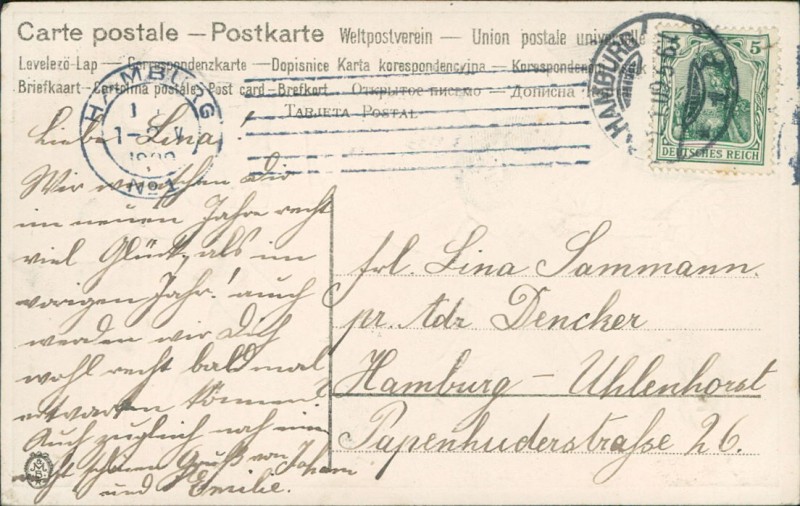 Carte postale — Postkarte Weltpostverein — Union postale universelle
Levelező-Lap — Correspondenzkarte — Dopisnice Karta korespondencyjna — Korespondenc
Briefkaart — Cartolina postale — Post card — Brefkort — Открытое письмо — Дописна
TARJETA POSTAL
HAMBURG
1
1-2 V
No 1
HAMBURG
5
DEUTSCHES REICH
Liebe Lina!
Wir wünschen Dir
im neuen Jahre recht
viel Glück, als im
vorigen Jahr! auch
werden wir Dich
wohl recht bald mal
erwarten können?
Auch zugleich noch ein
recht schönen Gruß von
und Emilie.
Frl. Lina Sammann.
pr. Adr Dencker
Hamburg — Uhlenhorst
Papenhuderstrafse 26.